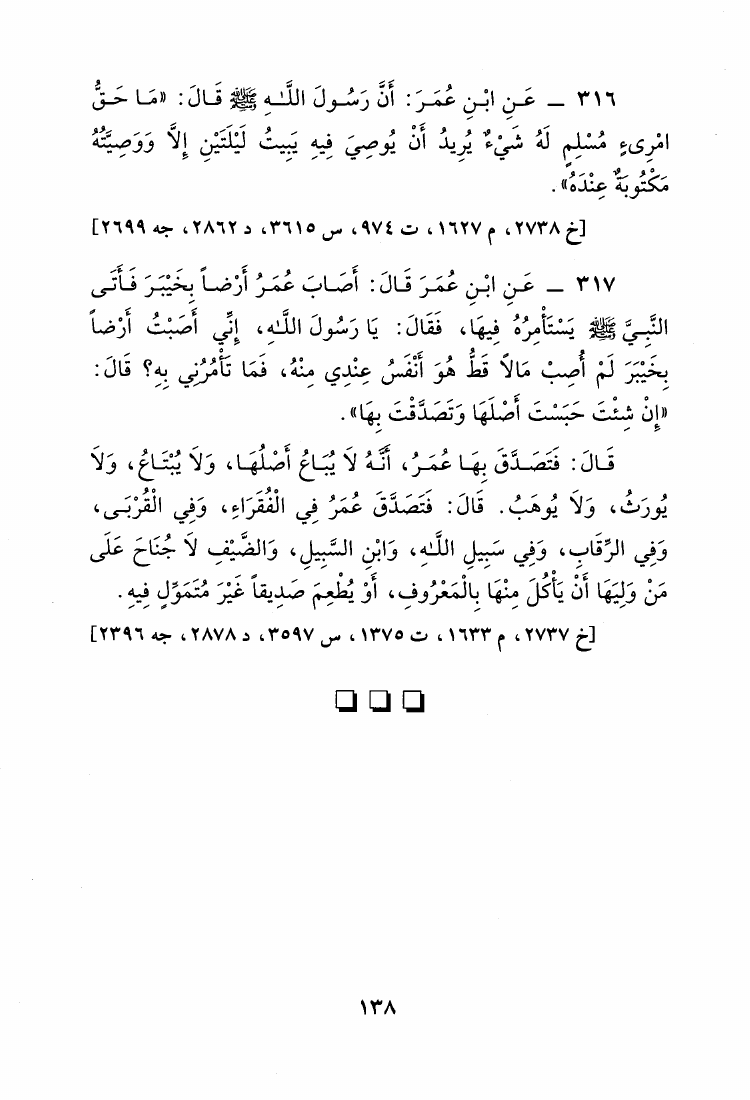 ٣١٦ ــ عَـنِ ابْـنِ عُمَـرَ: أَنَّ رَسُـولَ اللَّـهِ ﷺ قَـالَ: «مَـا حَـقُّ
امْرِىءٍ مُسْلِمٍ لَهُ شَيْءٌ يُرِيدُ أَنْ يُوصِيَ فِيهِ يَبِيتُ لَيْلَتَيْنِ إِلاَّ وَوَصِيَّتُهُ
مَكْتُوبَةٌ عِنْدَهُ».
[خ ٢٧٣٨، م ١٦٢٧، ت ٩٧٤، س ٣٦١٥، د ٢٨٦٢، جه ٢٦٩٩]
٣١٧ ــ عَـنِ ابْـنِ عُمَـرَ قَـالَ: أَصَـابَ عُمَـرُ أَرْضـاً بِخَيْبَـرَ فَـأَتَـى
النَّبِيَّ ﷺ يَسْتَأْمِرُهُ فِيهَا، فَقَالَ: يَا رَسُولَ اللَّهِ، إِنِّي أَصَبْتُ أَرْضاً
بِخَيْبَرَ لَمْ أُصِبْ مَالاً قَطُّ هُوَ أَنْفَسُ عِنْدِي مِنْهُ، فَمَا تَأْمُرُنِي بِهِ؟ قَالَ:
«إِنْ شِئْتَ حَبَسْتَ أَصْلَهَا وَتَصَدَّقْتَ بِهَا».
قَـالَ: فَتَصَـدَّقَ بِهَـا عُمَـرُ، أَنَّـهُ لَا يُبَـاعُ أَصْلُهَـا، وَلَا يُبْتَـاعُ، وَلَا
يُورَثُ، وَلَا يُوهَبُ. قَالَ: فَتَصَدَّقَ عُمَرُ فِي الْفُقَرَاءِ، وَفِي الْقُرْبَـى،
وَفِي الرِّقَابِ، وَفِي سَبِيلِ اللَّهِ، وَابْنِ السَّبِيلِ، وَالضَّيْفِ لَا جُنَاحَ عَلَى
مَنْ وَلِيَهَا أَنْ يَأْكُلَ مِنْهَا بِالْمَعْرُوفِ، أَوْ يُطْعِمَ صَدِيقاً غَيْرَ مُتَمَوِّلٍ فِيهِ.
[خ ٢٧٣٧، م ١٦٣٣، ت ١٣٧٥، س ٣٥٩٧، د ٢٨٧٨، جه ٢٣٩٦]
١٣٨